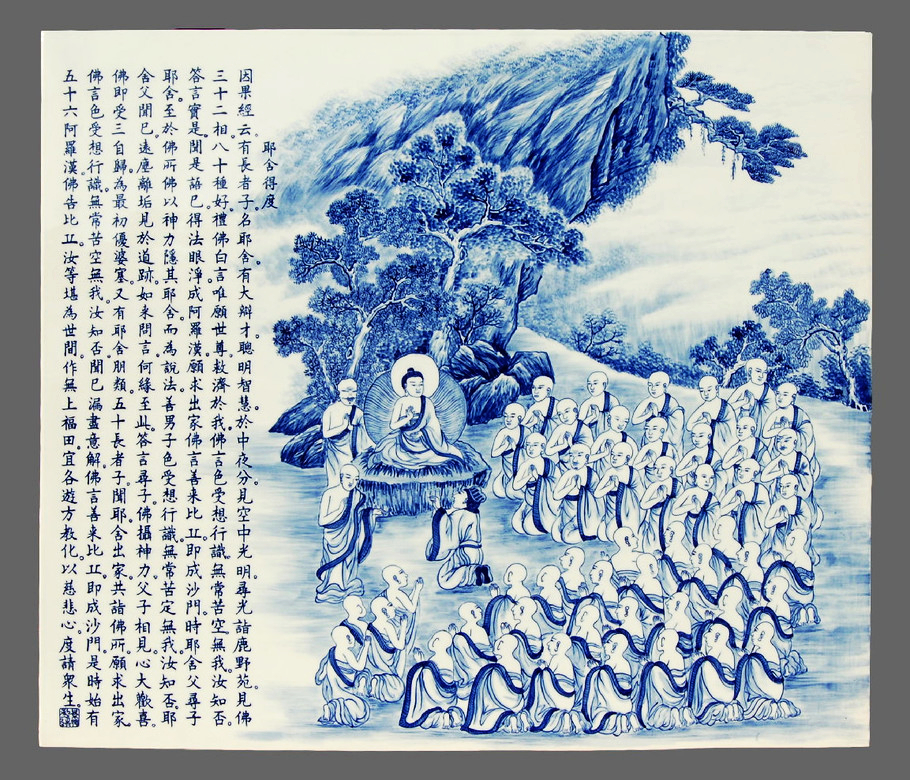 耶舍得度
因果經云。有長者子。名耶舍。有大辯才。聰明智慧。於中夜分。見空中光明。尋光詣鹿野苑。見佛
三十二相。八十種好。禮佛白言。唯願世尊。救濟於我。佛言。色受想行識。無常苦空無我。汝知否
答言實是。聞是語已。得法眼淨。成阿羅漢。願求出家。佛言善來比丘。即成沙門。時耶舍父尋子
耶舍。至於佛所。佛以神力隱其耶舍。而為說法。善男子。色受想行識。無常苦定無我。汝知否。耶
舍父聞已。遠塵離垢。見於道跡。如來問言。何緣至此。答言尋子。佛攝神力。父子相見。心大歡喜
佛即受三自歸。為最初優婆塞。又有耶舍朋類。五十長者子。聞耶舍出家。共詣佛所。願求出家
佛言。色受想行識。無常苦空無我。汝知否。聞已漏盡意解。佛言善來比丘。即成沙門。是時始有
五十六阿羅漢。佛告比丘。汝等堪為世間。作無上福田。宜各遊方教化。以慈悲心。度請眾生。